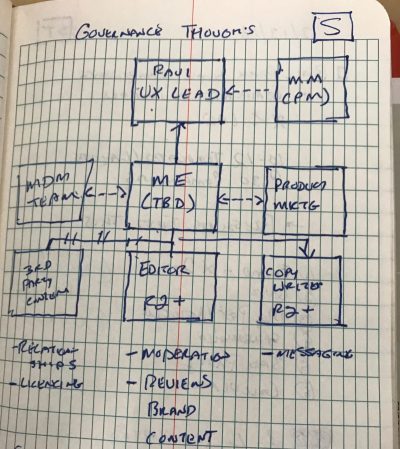 GOVERNANCE THOUGHTS
S
RAUL
UX LEAD
MM
(PM)
MDM
TEAM
ME
(TBD)
PRODUCT
MKTG
3RD
PARTY
CONTENT
EDITOR
R2+
COPY
WRITER
R2+
-RELATION
SHIPS
-LICENCING
- MODERATION
- REVIEWS
BRAND
CONTENT
- MESSAGING